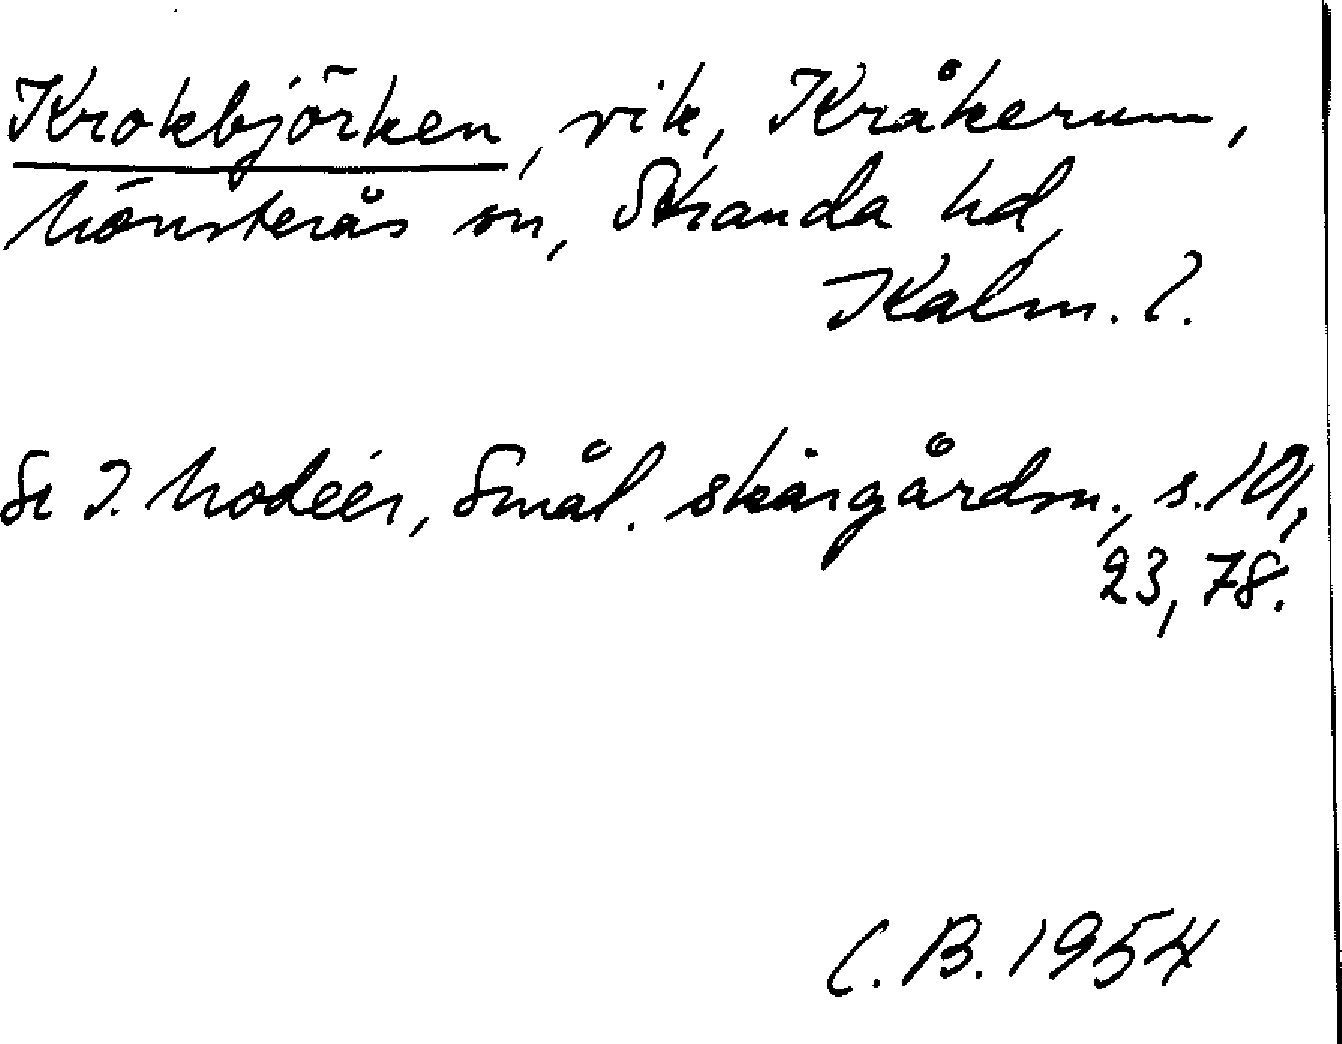 Krokbjörken, vik, Kråkerum,
Mönsterås sn, Stranda hd,
Kalm. l.
Se I. Modéer, Smål. skärgårdsn., s. 101,
23, 78.
C. B. 1954